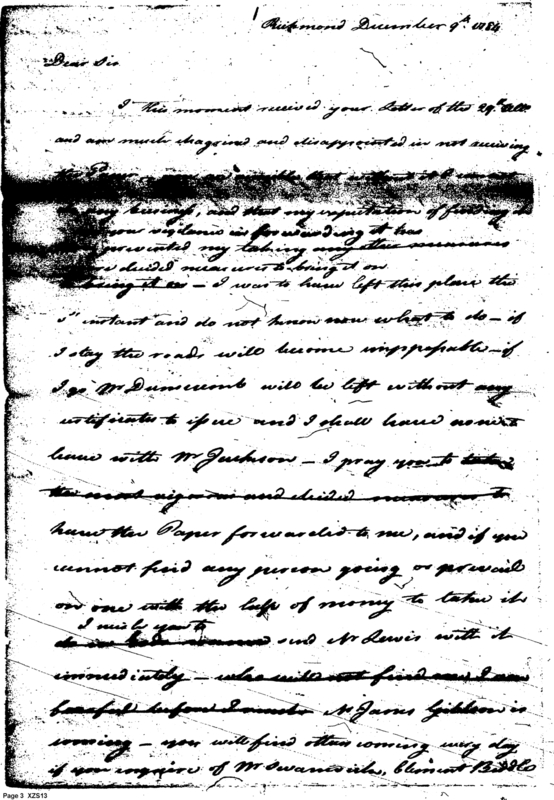 Richmond December 9th 1784
Dear Sir
I this moment received your Letter of the 29th Ulto.
and am much chagrined and disappointed in not receiving
the that without it I cannot
my business, and that my expectation of finding
your vigilance in forwarding it has
prevented my taking any other measures
decided measures to bring it on
to bring it on – I was to have left this place the
1st instant and do not know now what to do – if
I stay the roads will become unpassable – if
I go Mr Dunscomb will be left without any
certificates to issue and I shall have none to
leave with Mr Jackson – I pray you to take
the most vigorous and decided measures to
have the Paper forwarded to me, and if you
cannot find any person going or prevail
on one with the help of money to take it
I wish you to
do in send Mr Lewis with it
immediately – who will not find me I am
fearful before I Mr James Gibbon is
coming – you will find others coming every day
if you inquire of Mr Swanwick, Clement Biddle
Page 3 XZS13